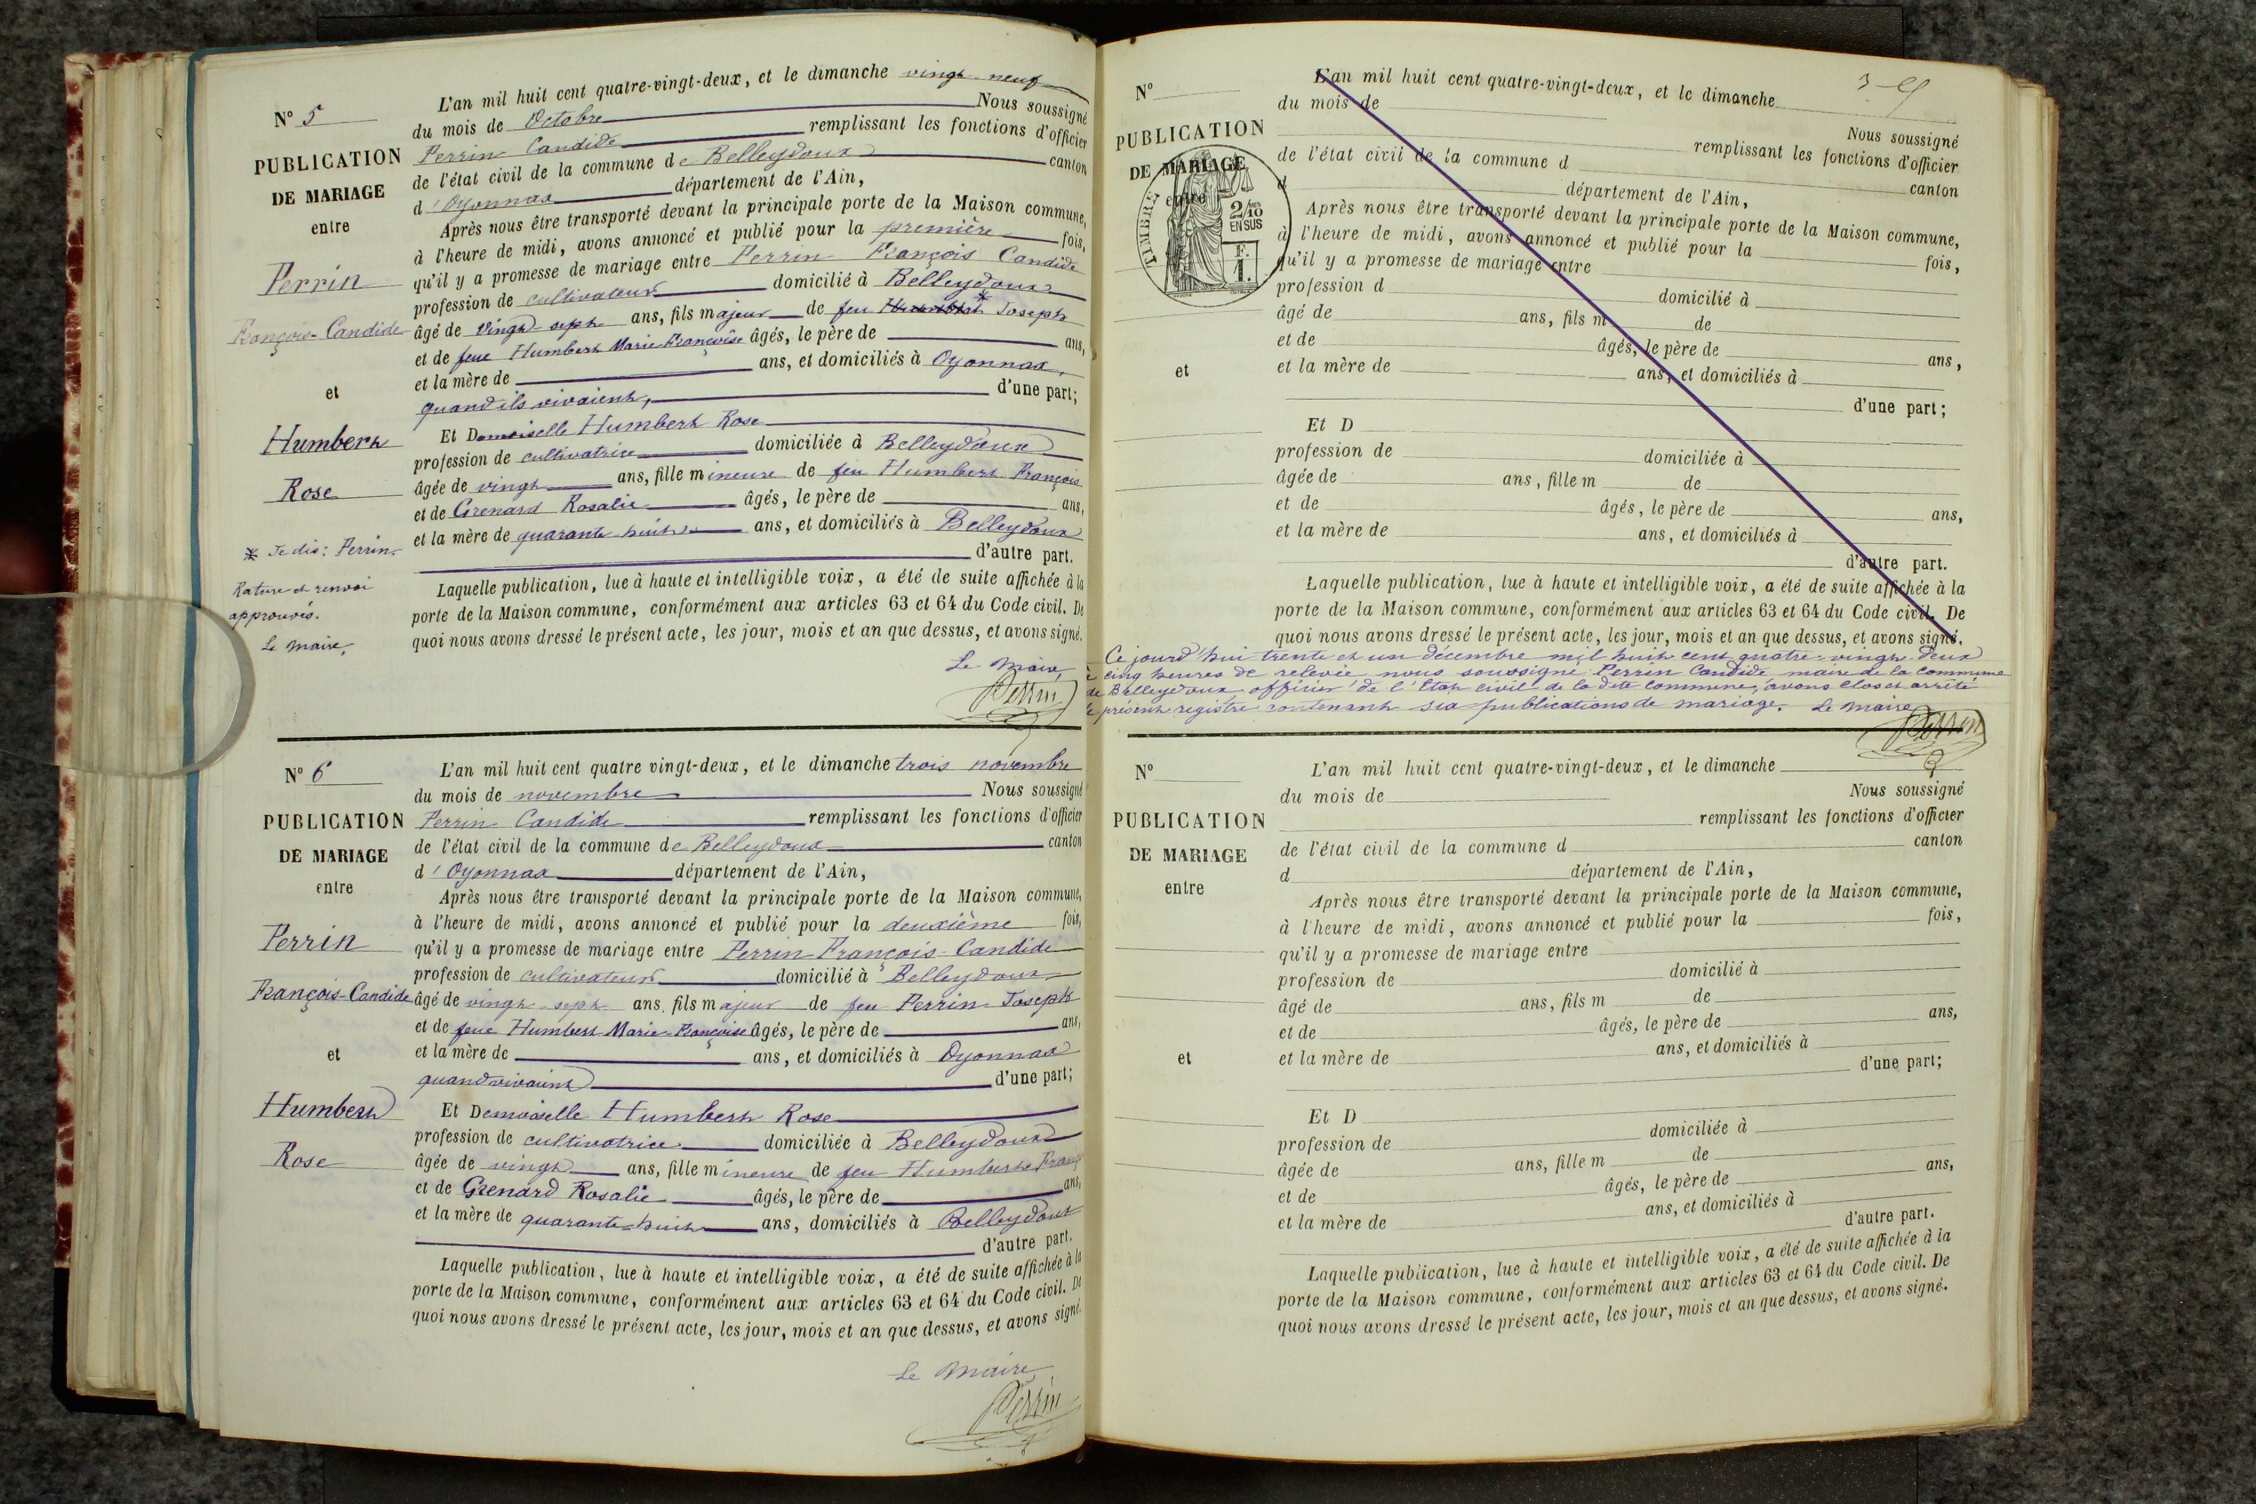 N° 5
PUBLICATION
DE MARIAGE
entre
Perrin
François-Candide
et
Humbert
Rose
* Je dis: Perrin.
Rature et renvoi
approuvés.
Le Maire,
L'an mil huit cent quatre-vingt-deux, et le dimanche vingt-neuf
du mois de Octobre Nous soussigné
Perrin Candide remplissant les fonctions d'officier
de l'état civil de la commune de Belleydoux canton
d'Oyonnax département de l'Ain,
Après nous être transporté devant la principale porte de la Maison commune,
à l'heure de midi, avons annoncé et publié pour la première fois,
qu'il y a promesse de mariage entre Perrin François Candide
profession de cultivateur domicilié à Belleydoux
âgé de vingt-sept ans, fils majeur de feu Humbert * Joseph
et de feue Humbert Marie-Françoise âgés, le père de ans,
et la mère de ans, et domiciliés à Oyonnax,
quand ils vivaient, d'une part;
Et Demoiselle Humbert Rose
profession de cultivatrice domiciliée à Belleydoux
âgée de vingt ans, fille mineure de feu Humbert François
et de Grenard Rosalie âgés, le père de ans,
et la mère de quarante-huit ans, et domiciliés à Belleydoux
d'autre part.
Laquelle publication, lue à haute et intelligible voix, a été de suite affichée à la
porte de la Maison commune, conformément aux articles 63 et 64 du Code civil. De
quoi nous avons dressé le présent acte, les jour, mois et an que dessus, et avons signé.
Le Maire,
Perrin
N° 6
PUBLICATION
DE MARIAGE
entre
Perrin
François-Candide
et
Humbert
Rose
L'an mil huit cent quatre vingt-deux, et le dimanche trois novembre
du mois de novembre Nous soussigné
Perrin Candide remplissant les fonctions d'officier
de l'état civil de la commune de Belleydoux canton
d'Oyonnax département de l'Ain,
Après nous être transporté devant la principale porte de la Maison commune,
à l'heure de midi, avons annoncé et publié pour la deuxième fois,
qu'il y a promesse de mariage entre Perrin François-Candide
profession de cultivateur domicilié à Belleydoux
âgé de vingt-sept ans, fils majeur de feu Perrin Joseph
et de feue Humbert Marie-Françoise âgés, le père de ans,
et la mère de ans, et domiciliés à Oyonnax
quand vivaient d'une part;
Et Demoiselle Humbert Rose
profession de cultivatrice domiciliée à Belleydoux
âgée de vingt ans, fille mineure de feu Humbert Franç
et de Grenard Rosalie âgés, le père de ans,
et la mère de quarante-huit ans, domiciliés à Belleydoux
d'autre part.
Laquelle publication, lue à haute et intelligible voix, a été de suite affichée à la
porte de la Maison commune, conformément aux articles 63 et 64 du Code civil. De
quoi nous avons dressé le présent acte, les jour, mois et an que dessus, et avons signé.
Le Maire,
Perrin
N°
PUBLICATION
DE MARIAGE
entre
TIMBRE
2/10
EN SUS
F.
1.
et
L'an mil huit cent quatre-vingt-deux, et le dimanche
du mois de Nous soussigné
remplissant les fonctions d'officier
de l'état civil de la commune d canton
d département de l'Ain,
Après nous être transporté devant la principale porte de la Maison commune,
à l'heure de midi, avons annoncé et publié pour la fois,
qu'il y a promesse de mariage entre
profession d domicilié à
âgé de ans, fils m de
et de âgés, le père de ans,
et la mère de ans, et domiciliés à
d'une part;
Et D
profession de domiciliée à
âgée de ans, fille m de
et de âgés, le père de ans,
et la mère de ans, et domiciliés à
d'autre part.
Laquelle publication, lue à haute et intelligible voix, a été de suite affichée à la
porte de la Maison commune, conformément aux articles 63 et 64 du Code civil. De
quoi nous avons dressé le présent acte, les jour, mois et an que dessus, et avons signé.
Ce jourd'hui trente et un décembre mil huit cent quatre-vingt-deux
à cinq heures de relevée nous soussigné Perrin Candide maire de la commune
de Belleydoux officier de l'Etat civil de la dite commune, avons clos et arrêté
le présent registre contenant six publications de mariage. Le Maire
Perrin
N°
PUBLICATION
DE MARIAGE
entre
et
L'an mil huit cent quatre-vingt-deux, et le dimanche
du mois de Nous soussigné
remplissant les fonctions d'officier
de l'état civil de la commune d canton
d département de l'Ain,
Après nous être transporté devant la principale porte de la Maison commune,
à l'heure de midi, avons annoncé et publié pour la fois,
qu'il y a promesse de mariage entre
profession de domicilié à
âgé de ans, fils m de
et de âgés, le père de ans,
et la mère de ans, et domiciliés à
d'une part;
Et D
profession de domiciliée à
âgée de ans, fille m de
et de âgés, le père de ans,
et la mère de ans, et domiciliés à
d'autre part.
Laquelle publication, lue à haute et intelligible voix, a été de suite affichée à la
porte de la Maison commune, conformément aux articles 63 et 64 du Code civil. De
quoi nous avons dressé le présent acte, les jour, mois et an que dessus, et avons signé.